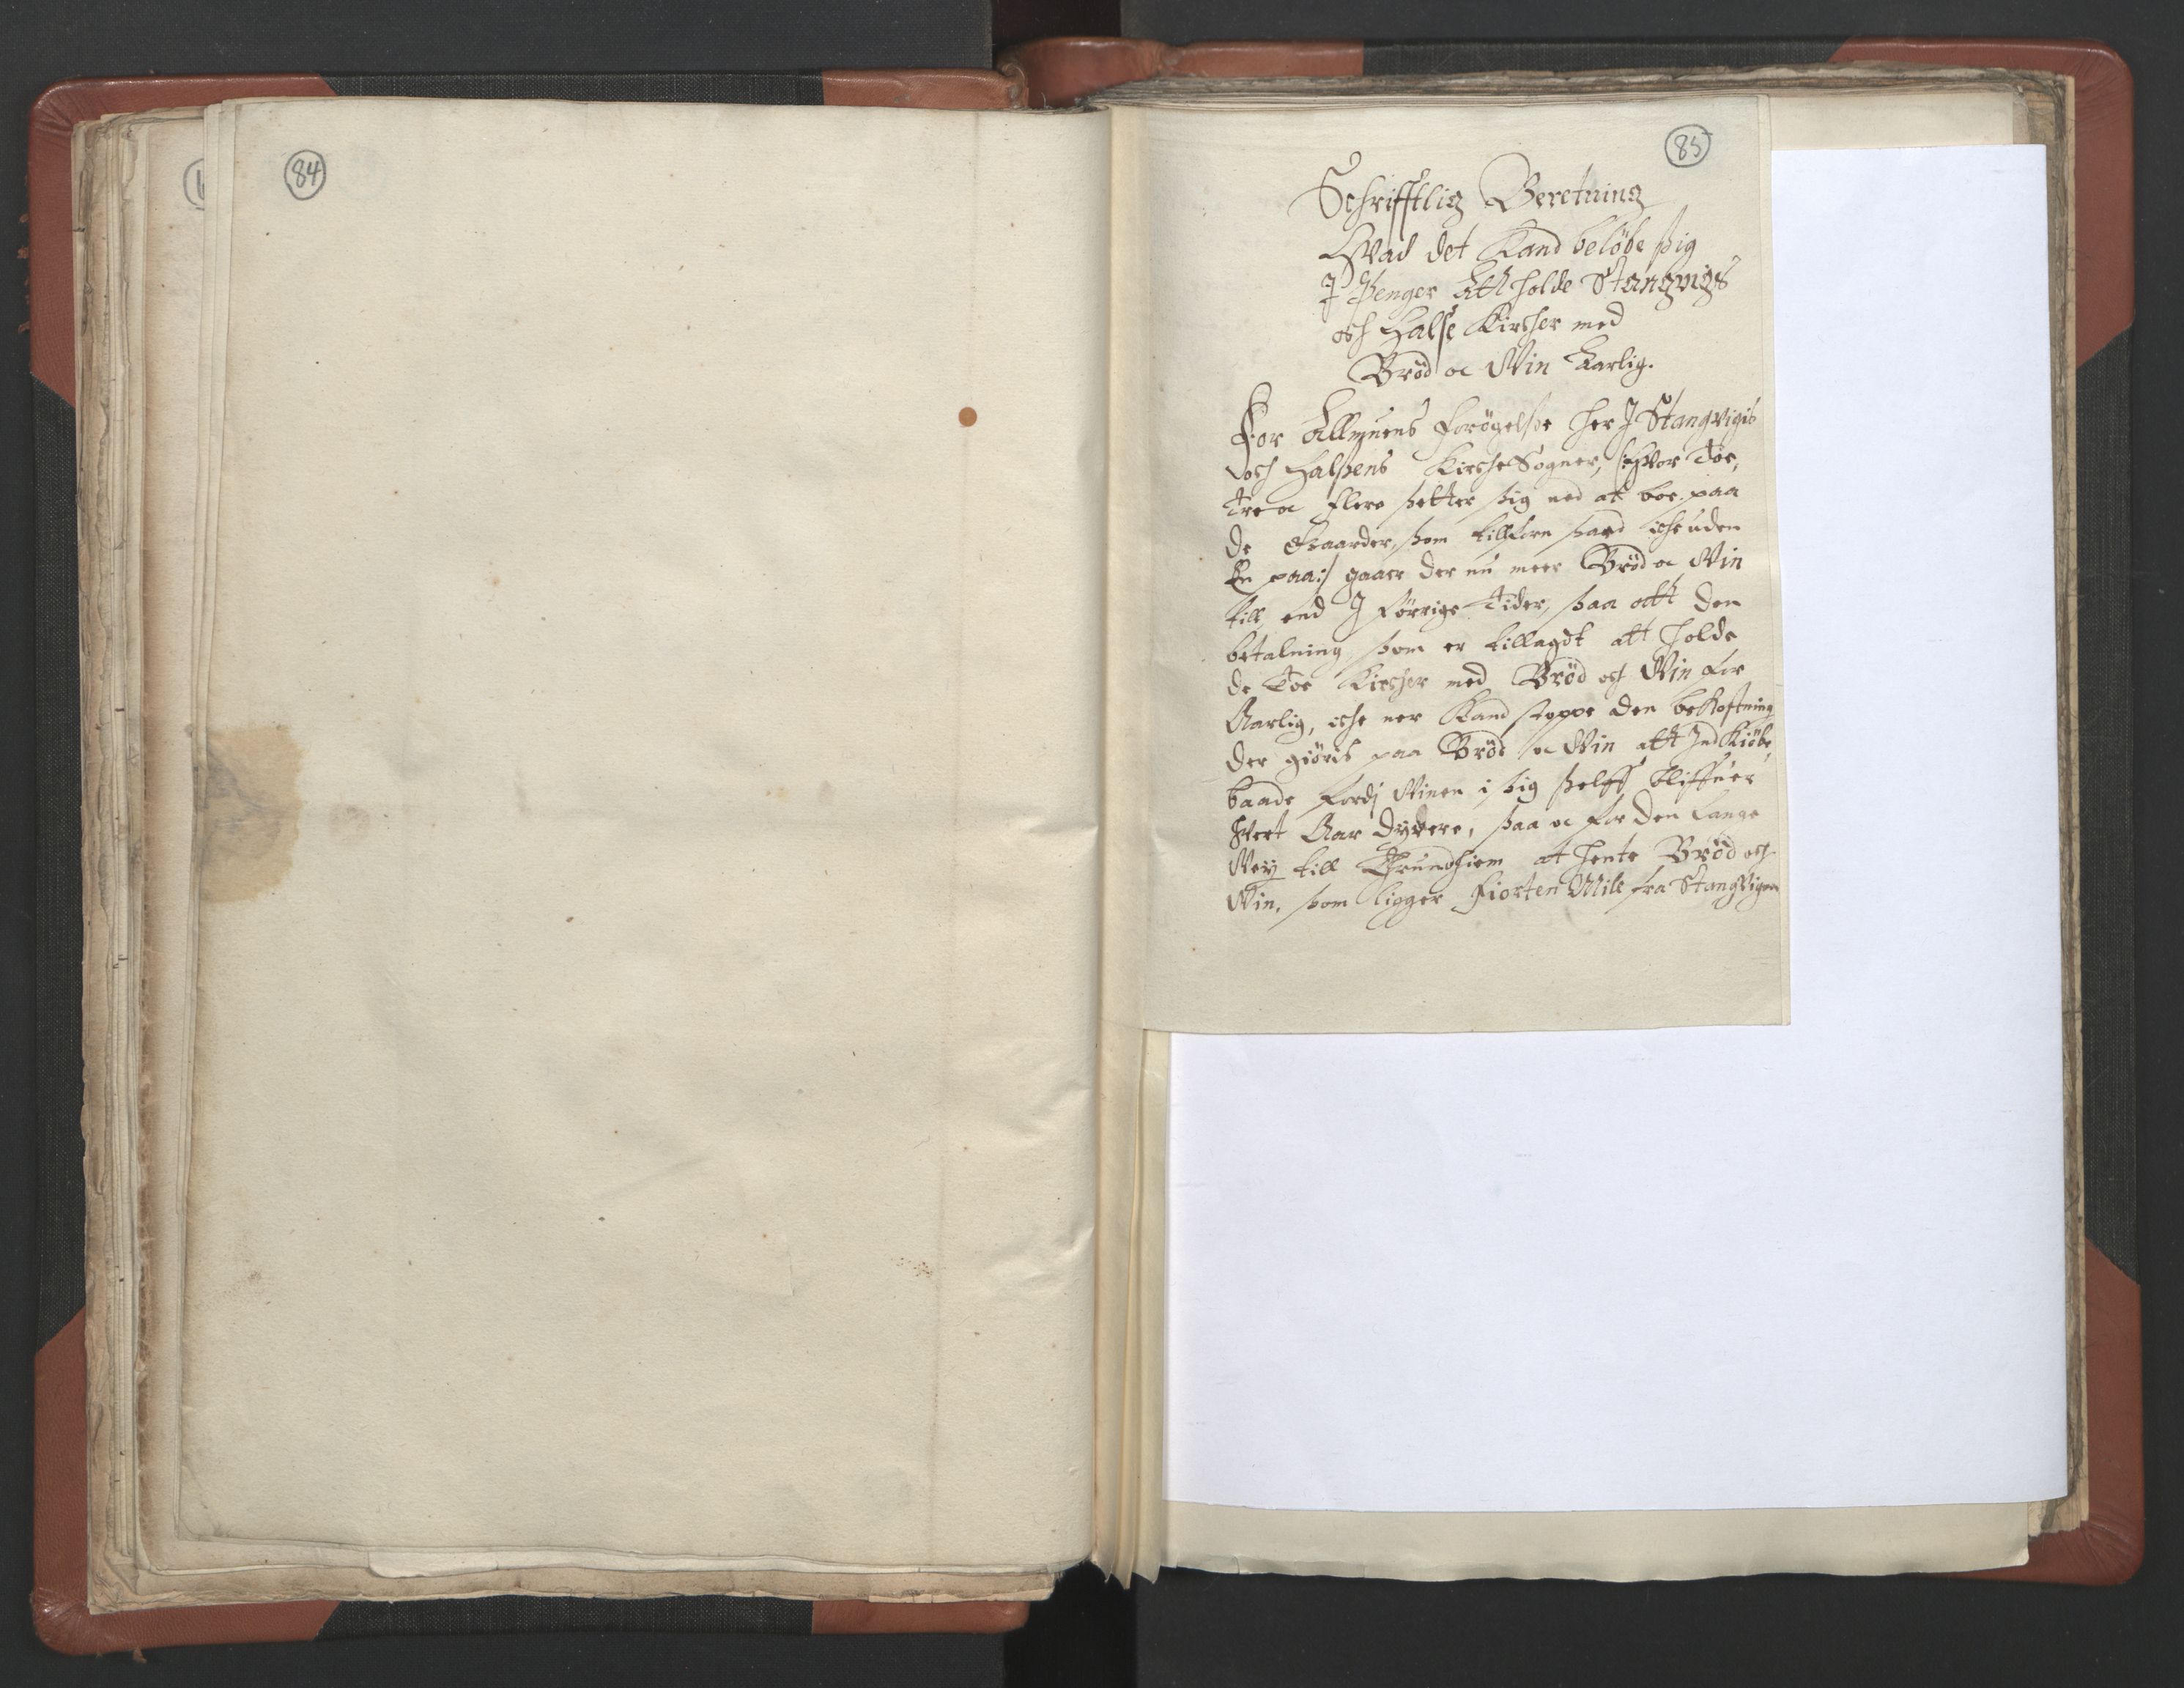 84
85
Schrifftlig Beretning
Hvad det Kand beløbe sig
J Penger Att holde Stangvigs
och Halse Kircher med
Brød oc Win Aarlig.
For Allmuens forøgelse her J Stangvigis
och Halsens KircheSogner, /:hvor Toe,
Tre oc flere setter sig ned at boe paa
de Gaarder, som tillforn sad iche uden
En paa:/ gaaer der nu meer Brød oc Win
till, end J forrige Tider, saa att den
betalning som er tillagdt att holde
de Toe Kircher med Brød och Win for
Aarlig, iche ner Kand stoppe den bekostning
der giøris paa Brød oc Win att Jnd Kiøbe,
baade fordj Winen i sig selff bliffuer
hvert Aar dyrere, saa oc for den lange
Wey till Thrundhiem at hente Brød och
Win, som ligger Fiorten Mile fra Stangvigen